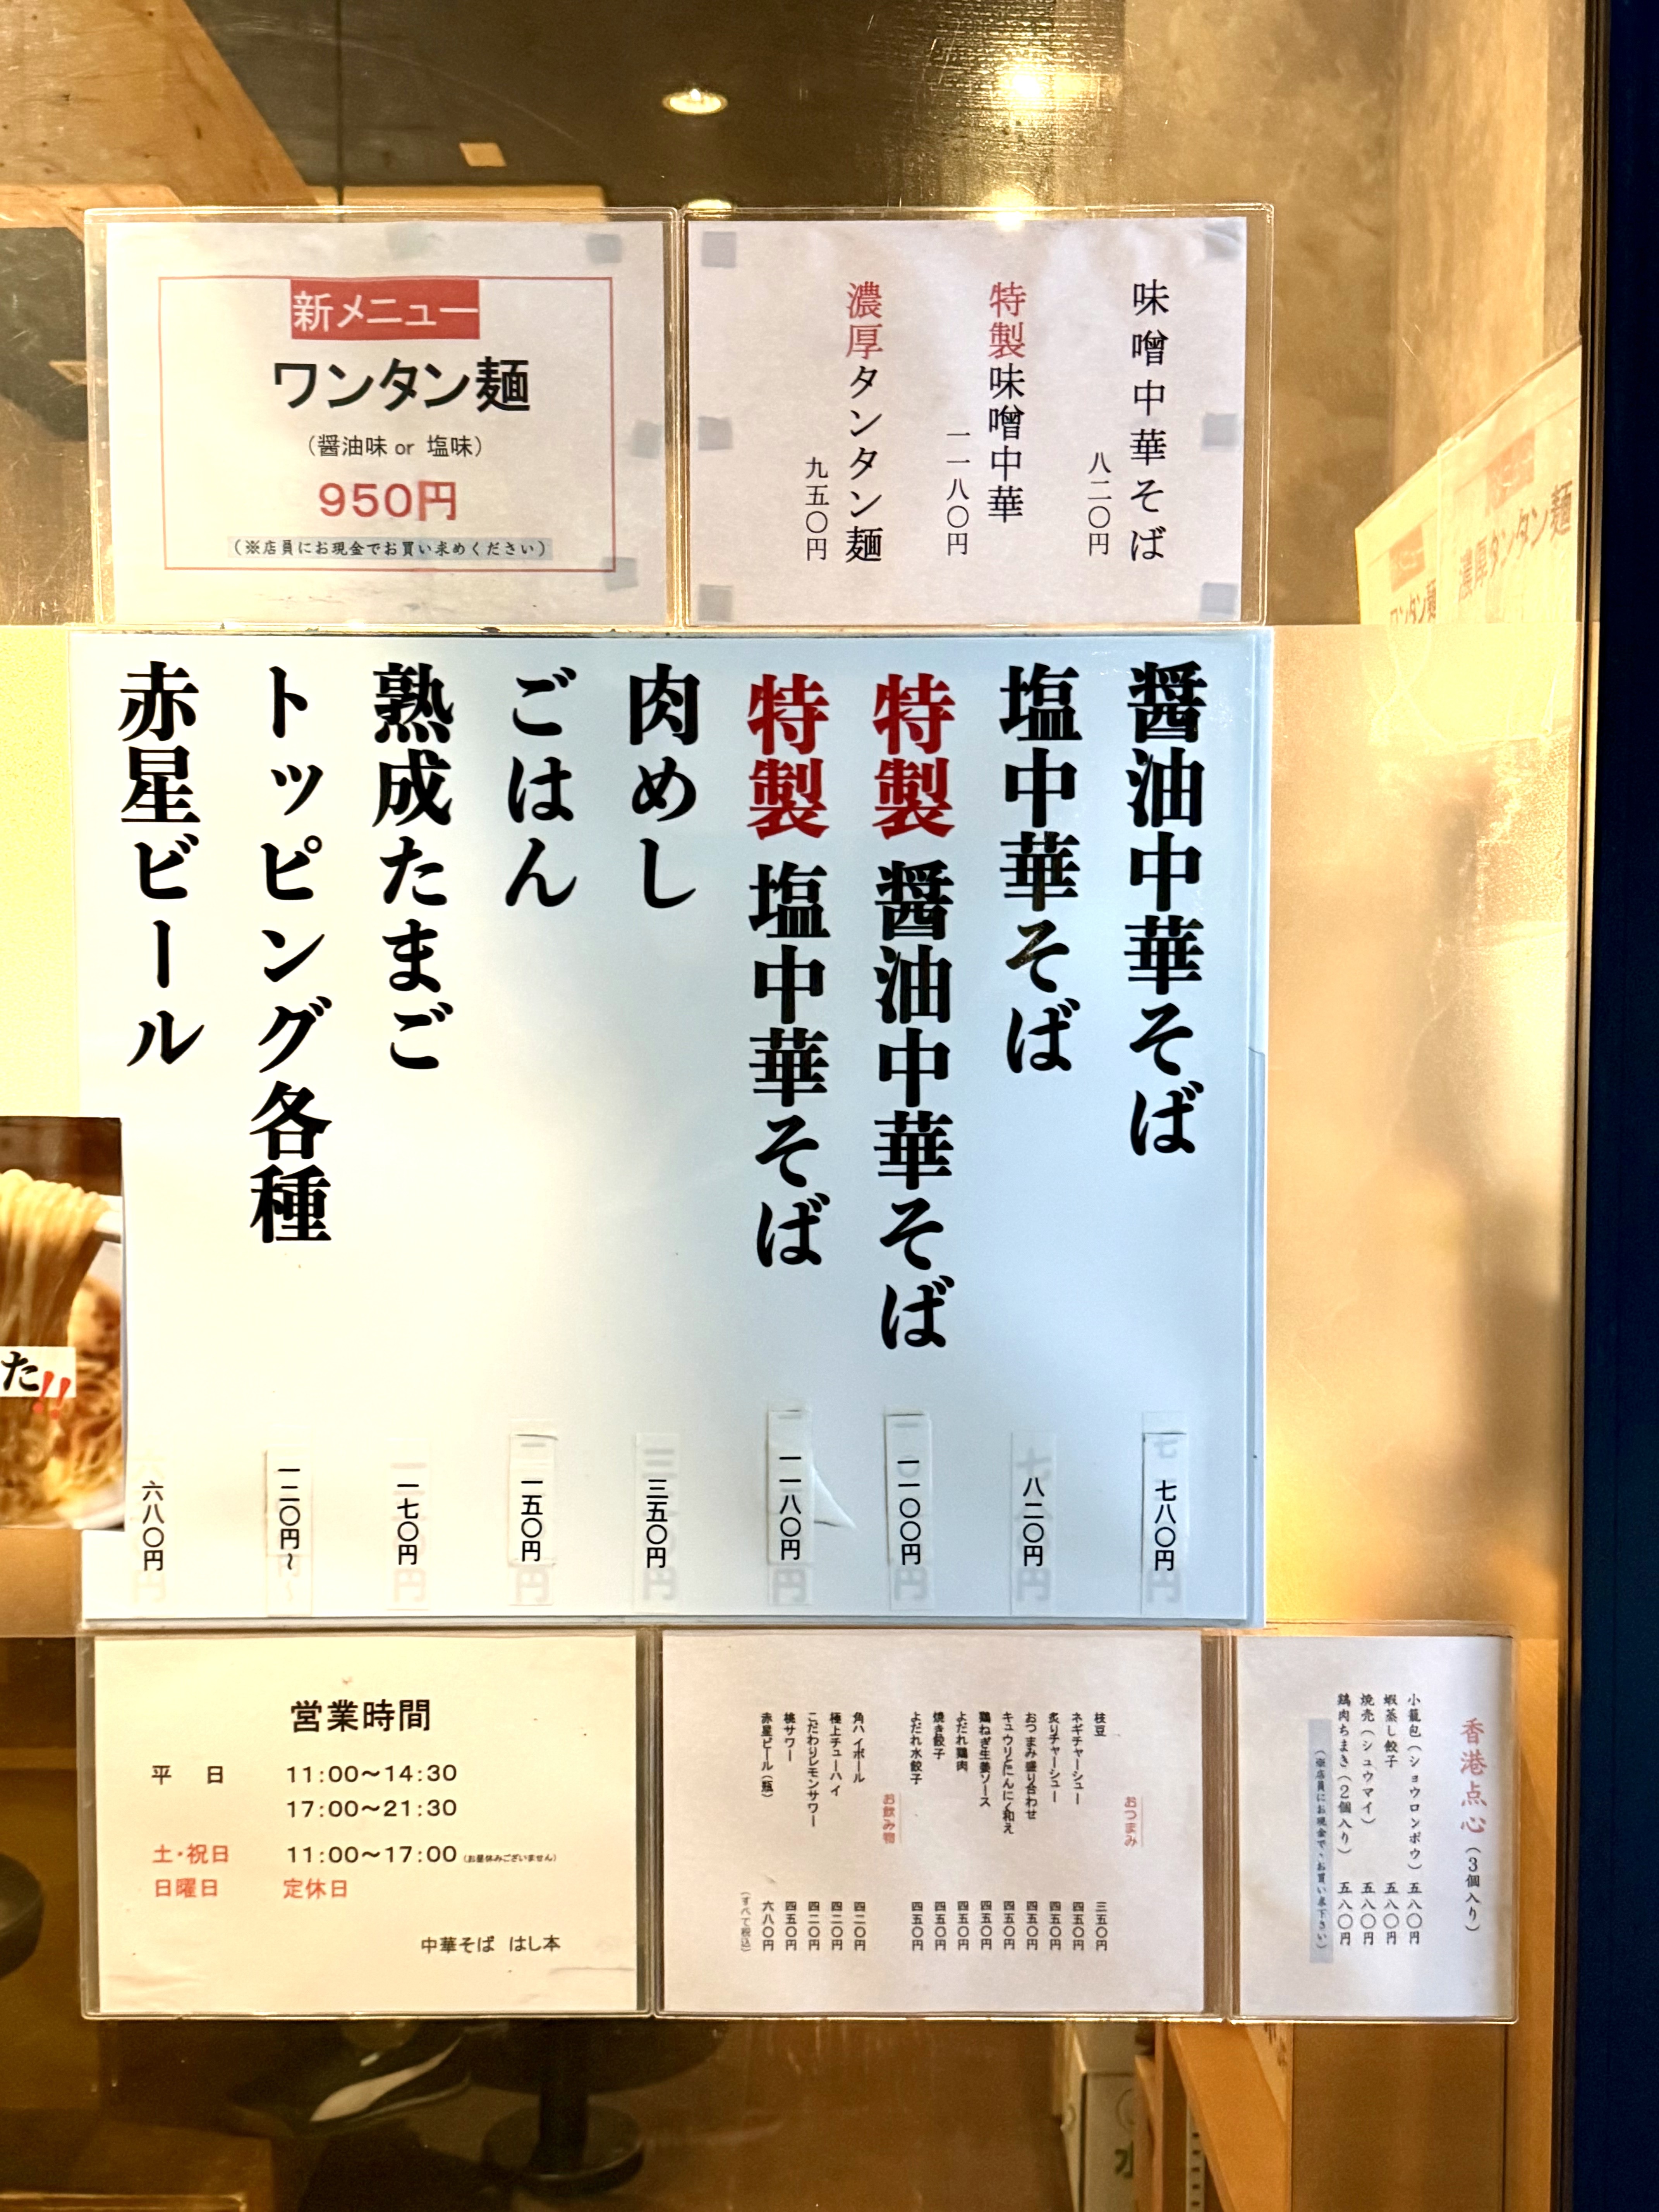 新メニュー
ワンタン麺
(醤油味 or 塩味)
950円
(※店員にお現金でお買い求めください)
味噌中華そば
八二〇円
特製味噌中華
一一八〇円
濃厚タンタン麺
九五〇円
醤油中華そば
七八〇円
塩中華そば
八二〇円
特製 醤油中華そば
一一〇〇円
特製 塩中華そば
一一八〇円
肉めし
三五〇円
ごはん
一五〇円
熟成たまご
一七〇円
トッピング各種
一二〇円~
赤星ビール
六八〇円
た!!
営業時間
平 日 11:00~14:30
17:00~21:30
土・祝日 11:00~17:00 (お昼休みございません)
日曜日 定休日
中華そば はし本
おつまみ
枝豆 三五〇円
ネギチャーシュー 四五〇円
炙りチャーシュー 四五〇円
おつまみ盛り合わせ 四五〇円
キュウリとにんにく和え 四五〇円
鶏ねぎ生姜ソース 四五〇円
よだれ鶏肉 四五〇円
焼き餃子 四五〇円
よだれ水餃子 四五〇円
お飲み物
角ハイボール 四二〇円
極上チューハイ 四二〇円
こだわりレモンサワー 四二〇円
桃サワー 四五〇円
赤星ビール(瓶) 六八〇円
(すべて税込)
香港点心 (3個入り)
小籠包(ショウロンポウ) 五八〇円
蝦蒸し餃子 五八〇円
焼売(シュウマイ) 五八〇円
鶏肉ちまき(2個入り) 五八〇円
(※店員にお現金で、お買い求下さい)
濃厚タンタン麺
ワンタン麺